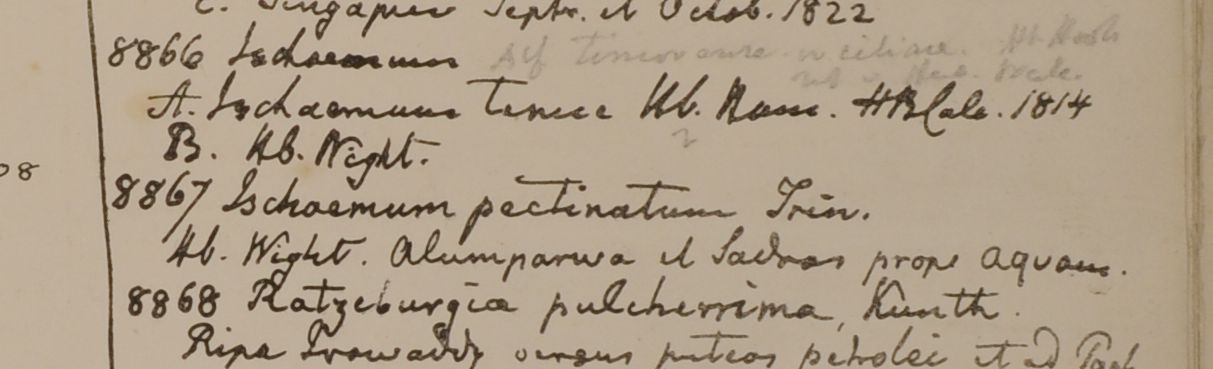 C. Singapur Septr. et Octob. 1822
8866 Ischaemum
A. Ischaemum Hb. HBCalc. 1814
B. Hb. Wight.
08
8867 Ischaemum pectinatum Trin.
Hb. Wight. Alumparwa et Sadras prope aquam.
8868 Ratzeburgia pulcherrima, Kunth.
Ripa Irawaddy versus puteos petrolei et ad